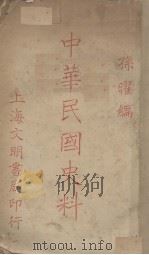 孫曜編
中華民國史料
上海文明書局印行
www.duxiu.com